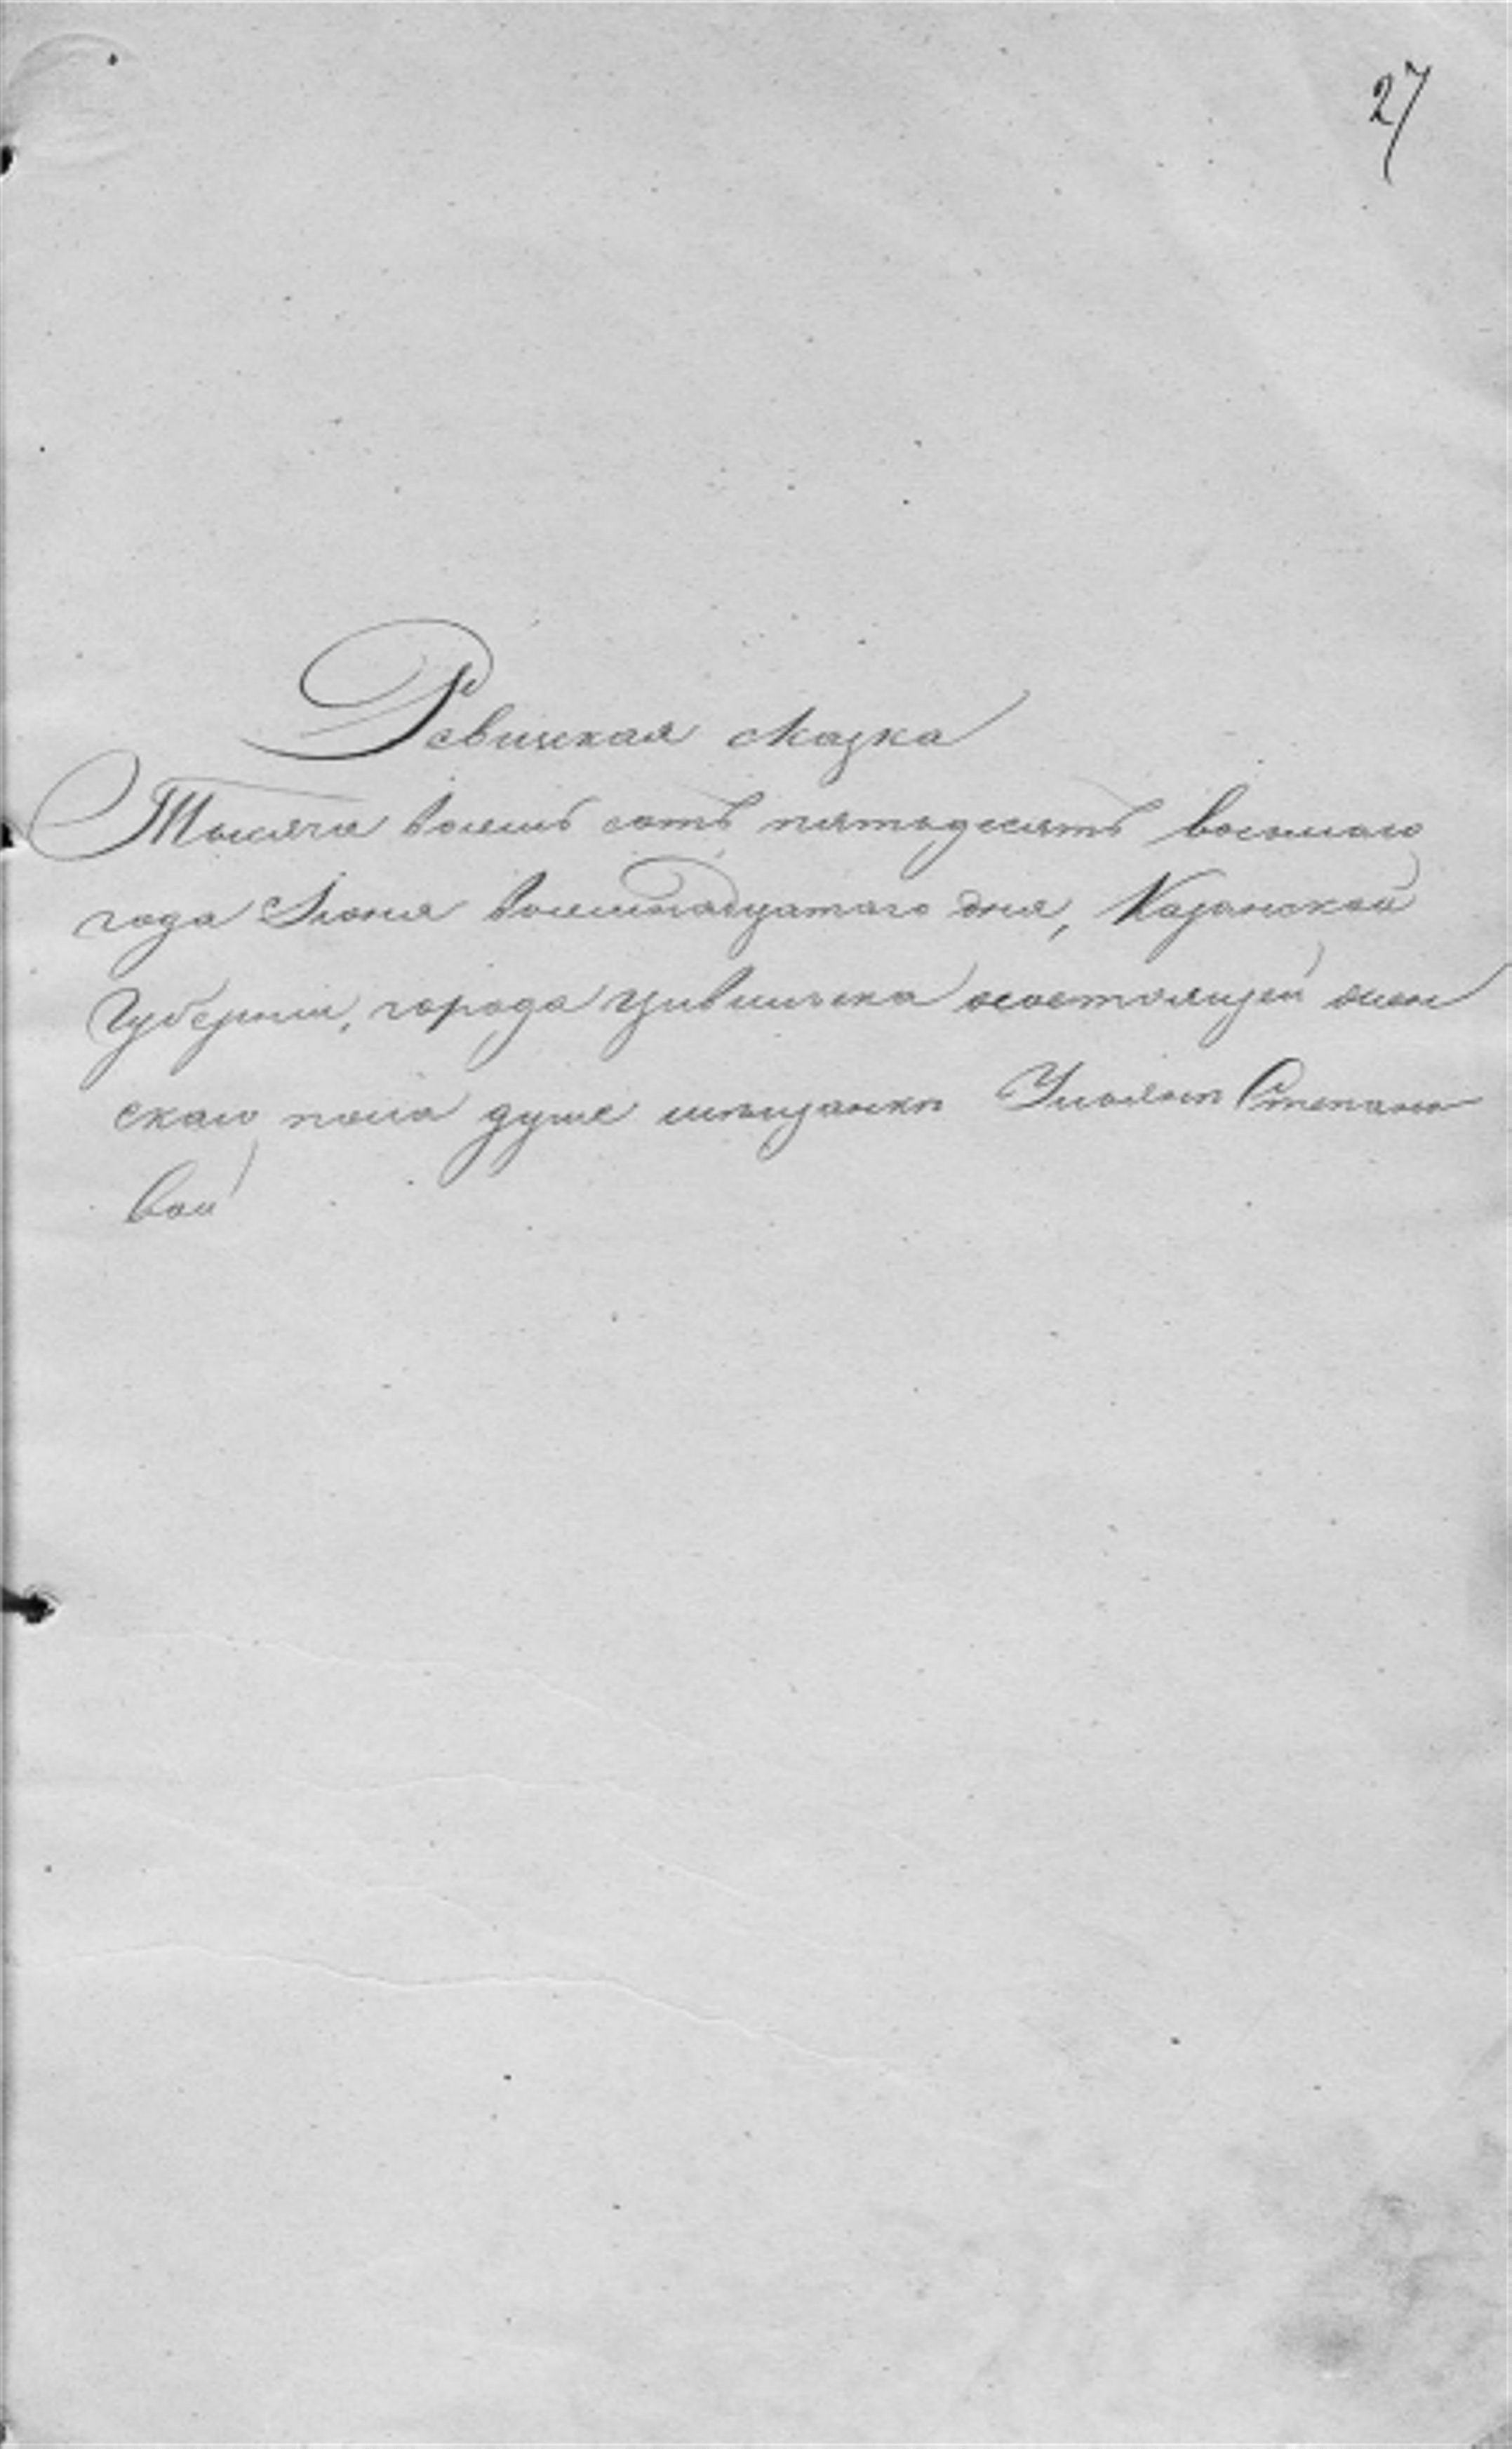 27
Ревиская сказка
Тысяча восемь сотъ пятьдесятъ восьмаго
года Іюня восемнадцатаго дня, Казанской
Губерніи, города Цивильска о состоящей жен
скаго пола душе мѣщанкѣ Ульянѣ Степано
вой